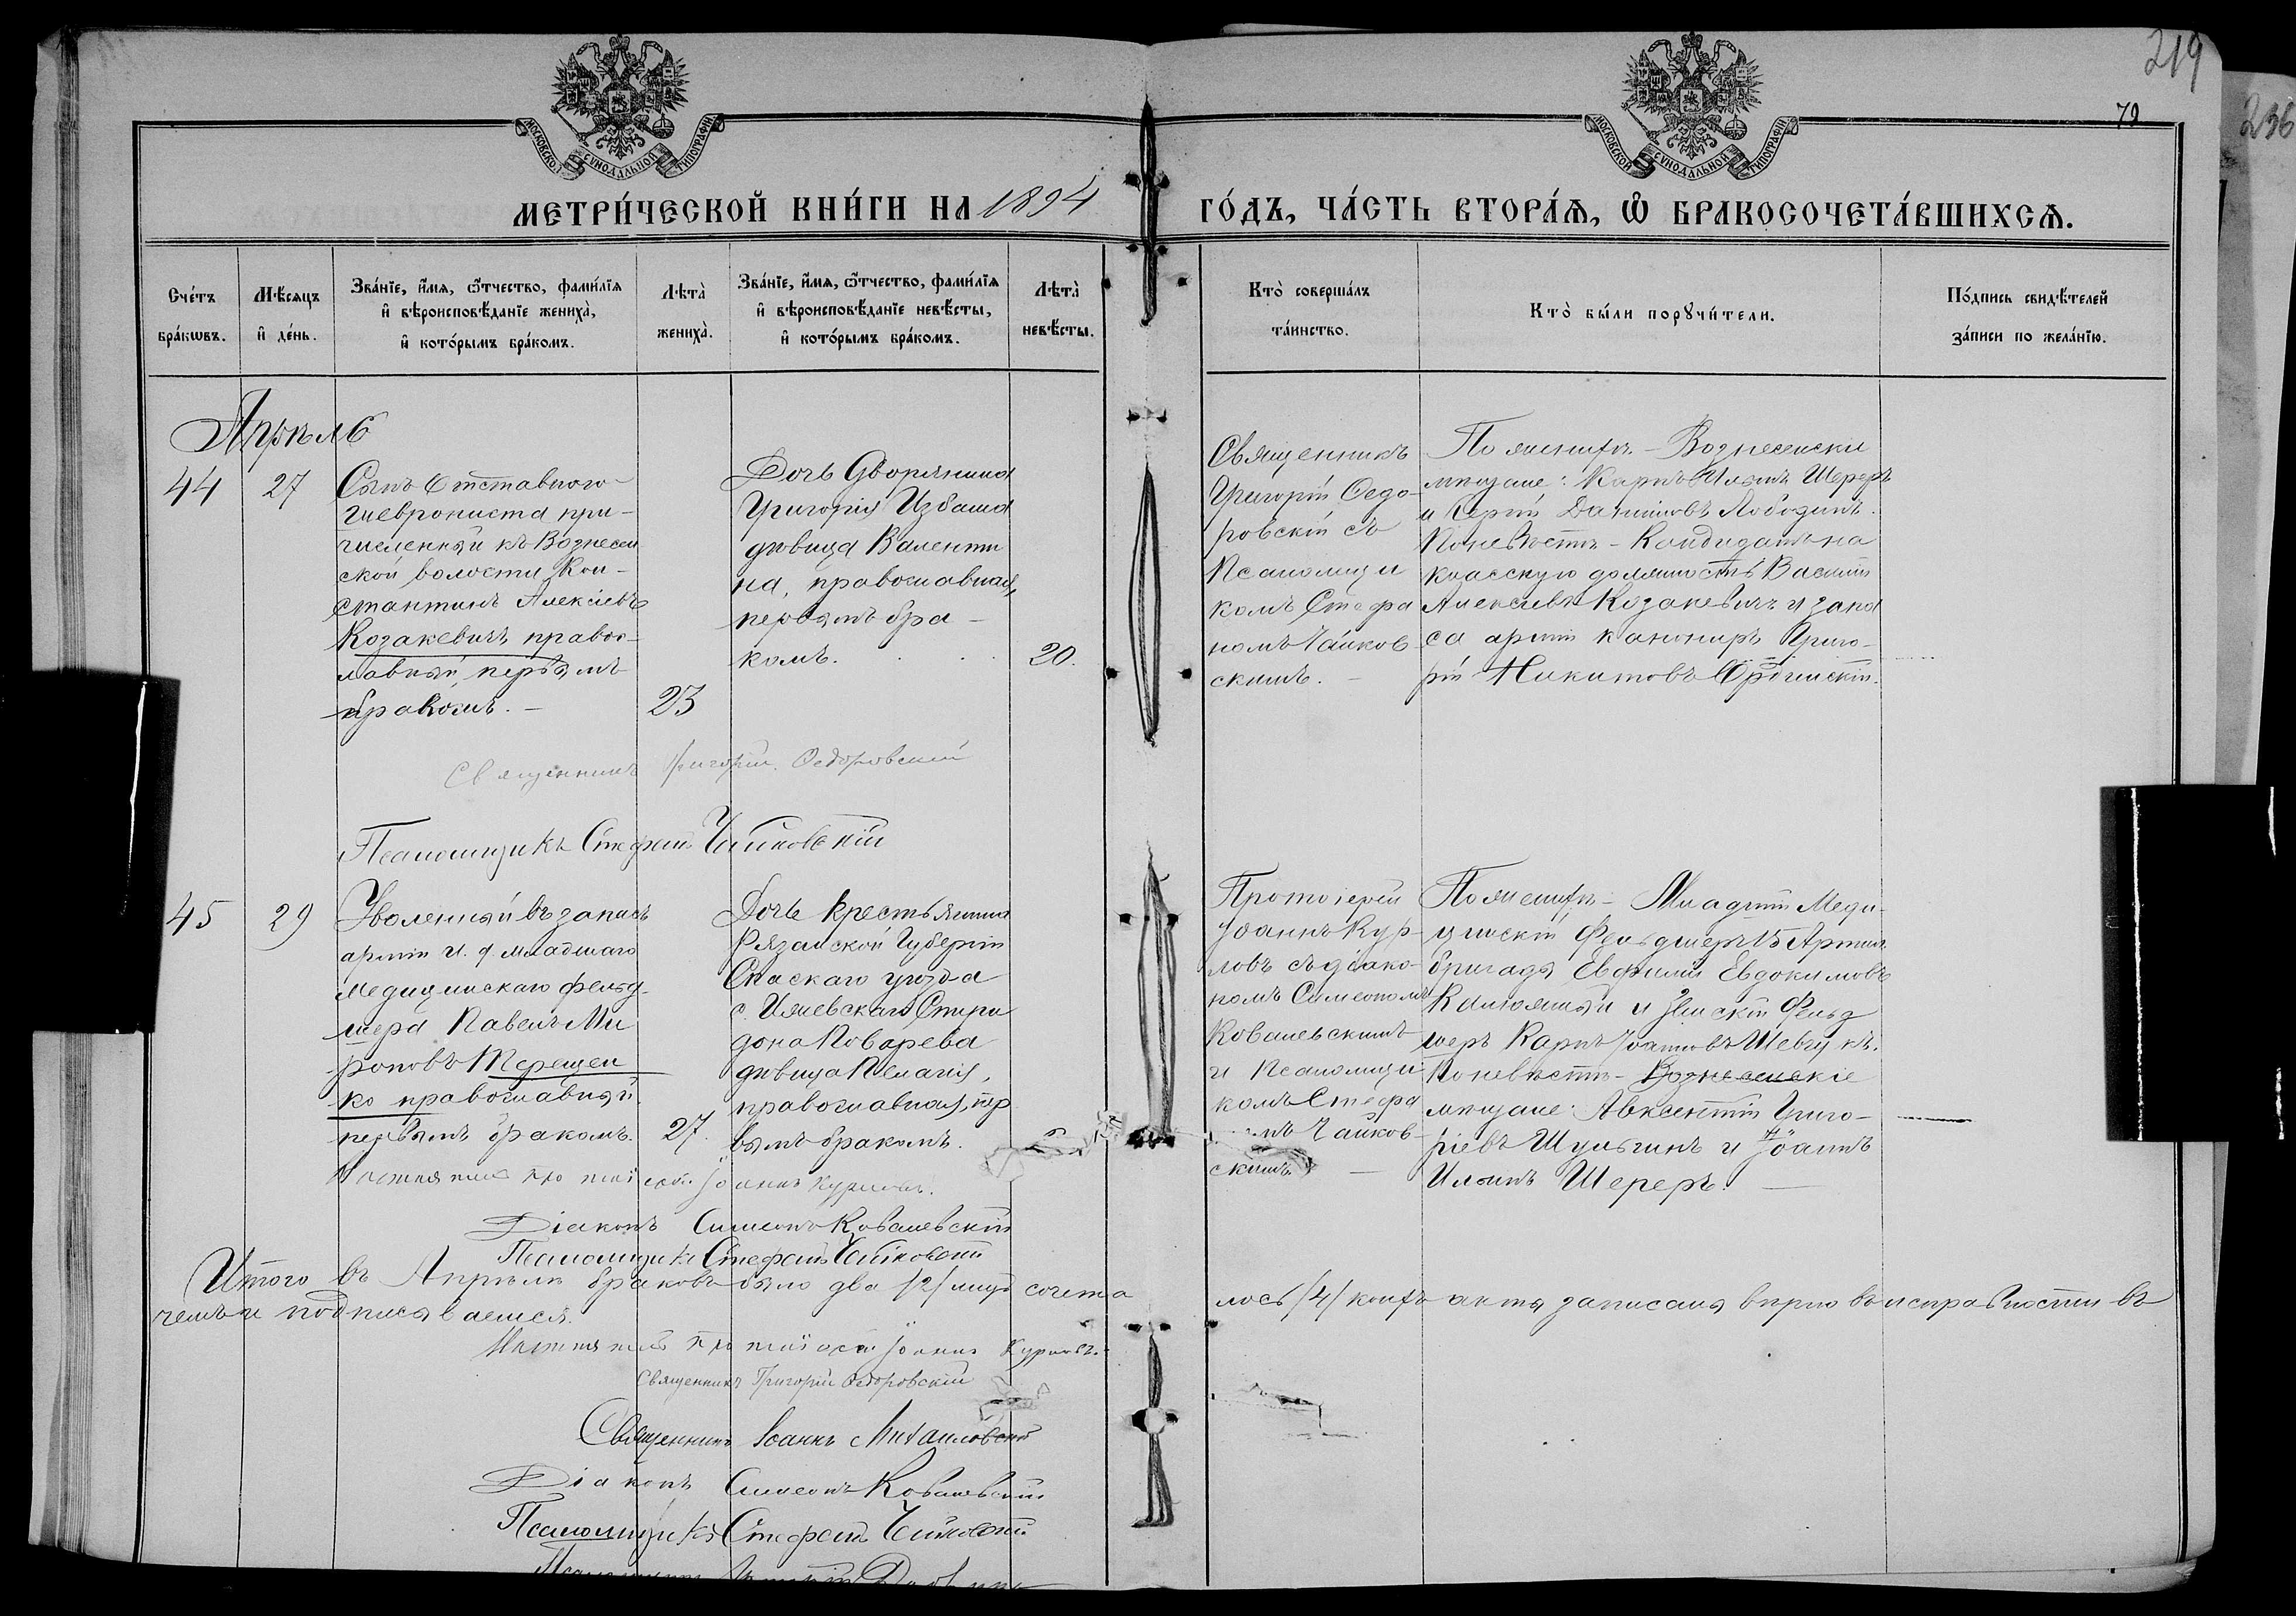 219
79
236
МОСКОВСКОЙ СѴНОДАЛЬНОЙ ТИПОГРАФІИ
МОСКОВСКОЙ СѴНОДАЛЬНОЙ ТИПОГРАФІИ
МЕТРИ́ЧЕСКОЙ КНИ́ГИ НА 1894 ГО́ДЪ, ЧА́СТЬ ВТОРА́Ѧ, Ѽ БРАКОСОЧЕТА́ВШИХСѦ.
Сче́тъ бра́кѡвъ.
Мѣ́сяцъ и҆ де́нь.
Зва́нїе, и҆́мѧ, ѻ҆́тчество, фами́лїѧ
и҆ вѣроисповѣ́данїе жениха̀,
и҆ кото́рымъ бра́комъ.
Лѣта̀ жениха̀.
Зва́нїе, и҆́мѧ, ѻ҆́тчество, фами́лїѧ
и҆ вѣроисповѣ́данїе невѣ́сты,
и҆ кото́рымъ бра́комъ.
Лѣта̀ невѣ́сты.
Кто̀ соверша́лъ
та́инство.
Кто̀ бы́ли порꙋчи́тели.
По́дпись свидѣ́телей
за́писи по жела́нїю.
Апрѣль
44
27
Сынъ отставного
фиеврописта при-
численный къ Вознесен
ской волости Кон-
стантинъ Алексіевъ
Козакевичъ правос-
лавный, первымъ
бракомъ. –
23
Дочь Дворянина
Григорія Избаша
дѣвица Валенти
на, православная,
первымъ бра-
комъ.
20.
Священникъ
Григорій Ѳедо-
ровскій съ
Псаломщи
комъ Стефа
номъ Чайков
скимъ. –
По женихѣ – Вознесенски
мѣщане: Карпъ Ильинъ Шереръ
и Сергій Даниловъ Лободинъ.
По невѣстѣ – Кандидатъ на
классную должность Василій
Алексіевъ Козакевичъ и запа
са арміи канониръ Григо-
рій Никитовъ
Священникъ Григорій Ѳедоровскій
Псаломщикъ Стефанъ Чайковскій
45
29
Уволенный въ запасъ
арміи и. д. младшаго
медицинскаго фельд-
шера Павелъ Ми
роновъ Терещен
ко православный
первымъ бракомъ.
27.
Дочь крестьянина
Рязанской Губерніи
Спаскаго уѣзда
с. Ижевскаго Спири
дона Поварева
дѣвица Пелагія,
православная, пер
вымъ бракомъ.
Протоіерей
Іоаннъ Кур-
ловъ съ діако-
номъ Симеономъ
Ковалевскимъ
и Псаломщи
комъ Стефа
номъ Чайков-
скимъ. –
По женихѣ – Младшій Меди-
цинскій Фельдшеръ 15 Артил.
бригады Евфимій Евдокимовъ
Калюжный и Фельд
шеръ Карпъ Іоанновъ Шевчукъ.
По невѣстѣ – Вознесенскіе
мѣщане: Авксентій Григо-
ріевъ Шульгинъ и Іоаннъ
Ильинъ Шереръ. –
Настоятель протоіерей Іоаннъ Курловъ.
Діаконъ Симеонъ Ковалевскій
Псаломщикъ Стефанъ Чайковскій
Итого въ Апрѣлѣ браковъ было два /2/ лицъ сочета лось /4/ коихъ акты записаны вѣрно въ исправности въ
чемъ и подписываемся.
Настоятель протоіерей Іоаннъ Курловъ.
Священникъ Григорій Ѳедоровскій
Священникъ Іоаннъ Михайловскій
Діаконъ Симеонъ Ковалевскій
Псаломщикъ Стефанъ Чайковскій